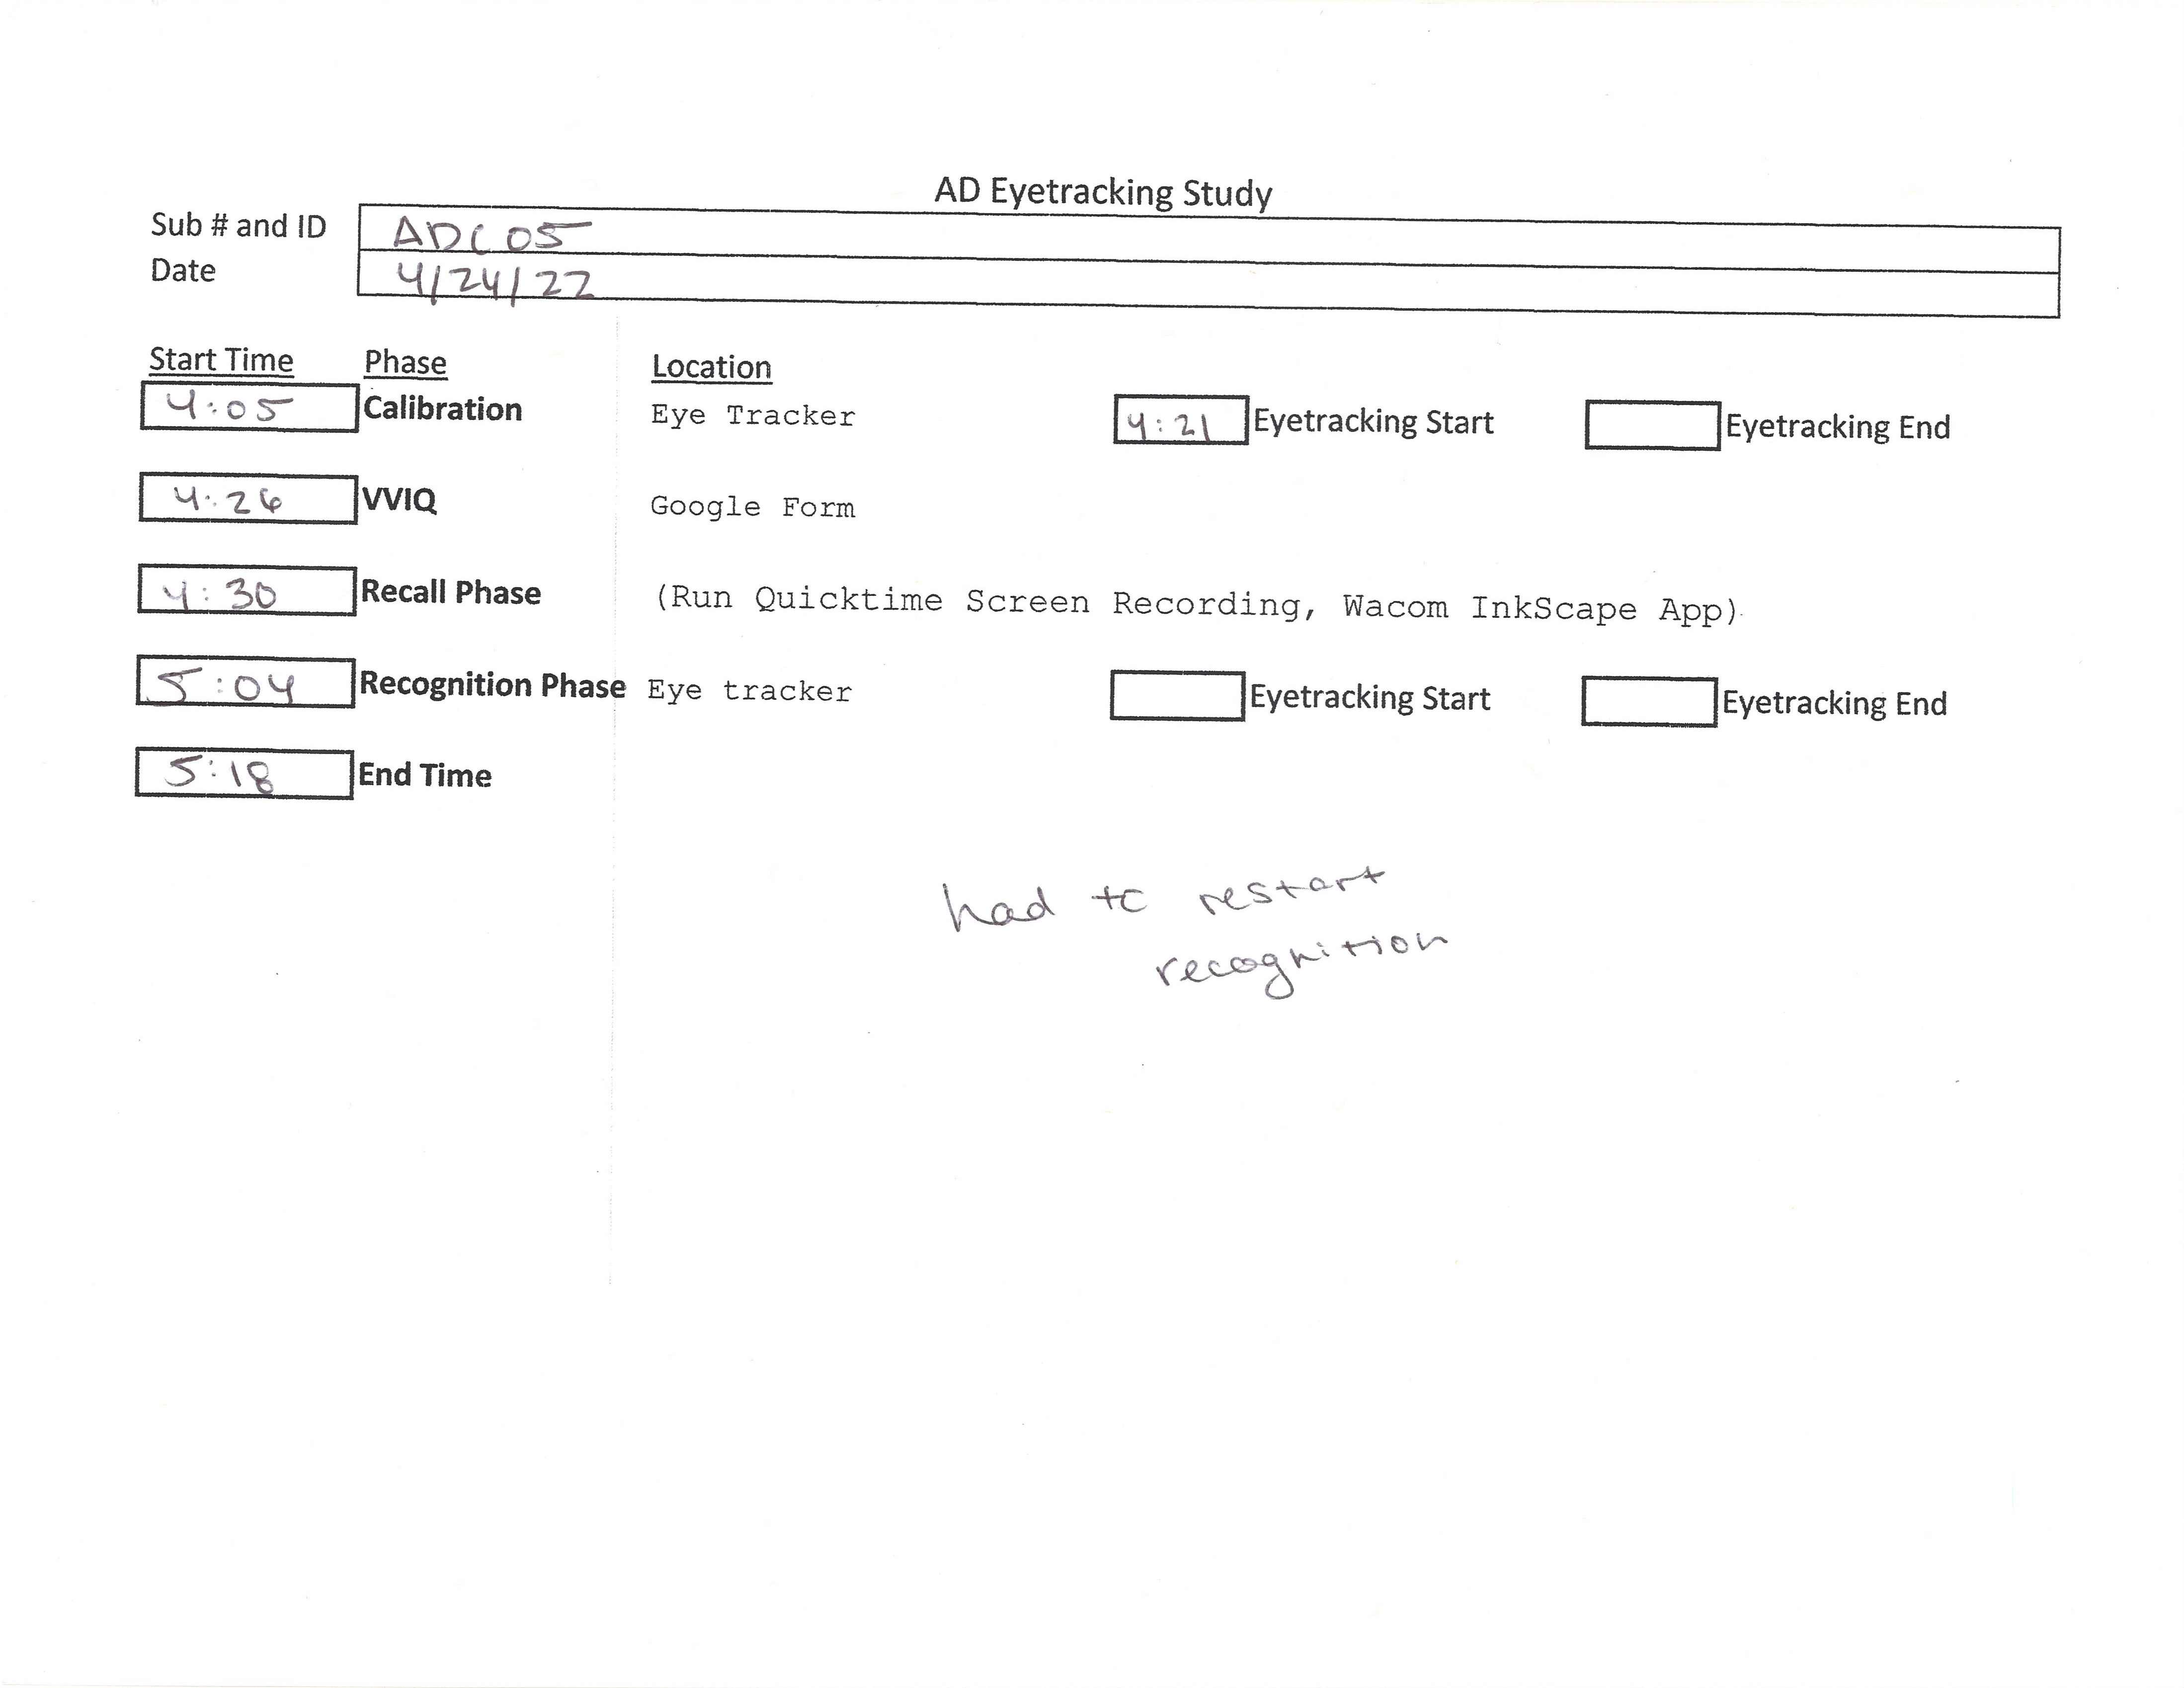 AD Eyetracking Study
Sub # and ID ADC05
Date 4/24/22
Start Time Phase Location
4:05 Calibration Eye Tracker 4:21 Eyetracking Start Eyetracking End
4:26 VVIQ Google Form
4:30 Recall Phase (Run Quicktime Screen Recording, Wacom InkScape App)
5:04 Recognition Phase Eye tracker Eyetracking Start Eyetracking End
5:18 End Time
had to restart
recognition